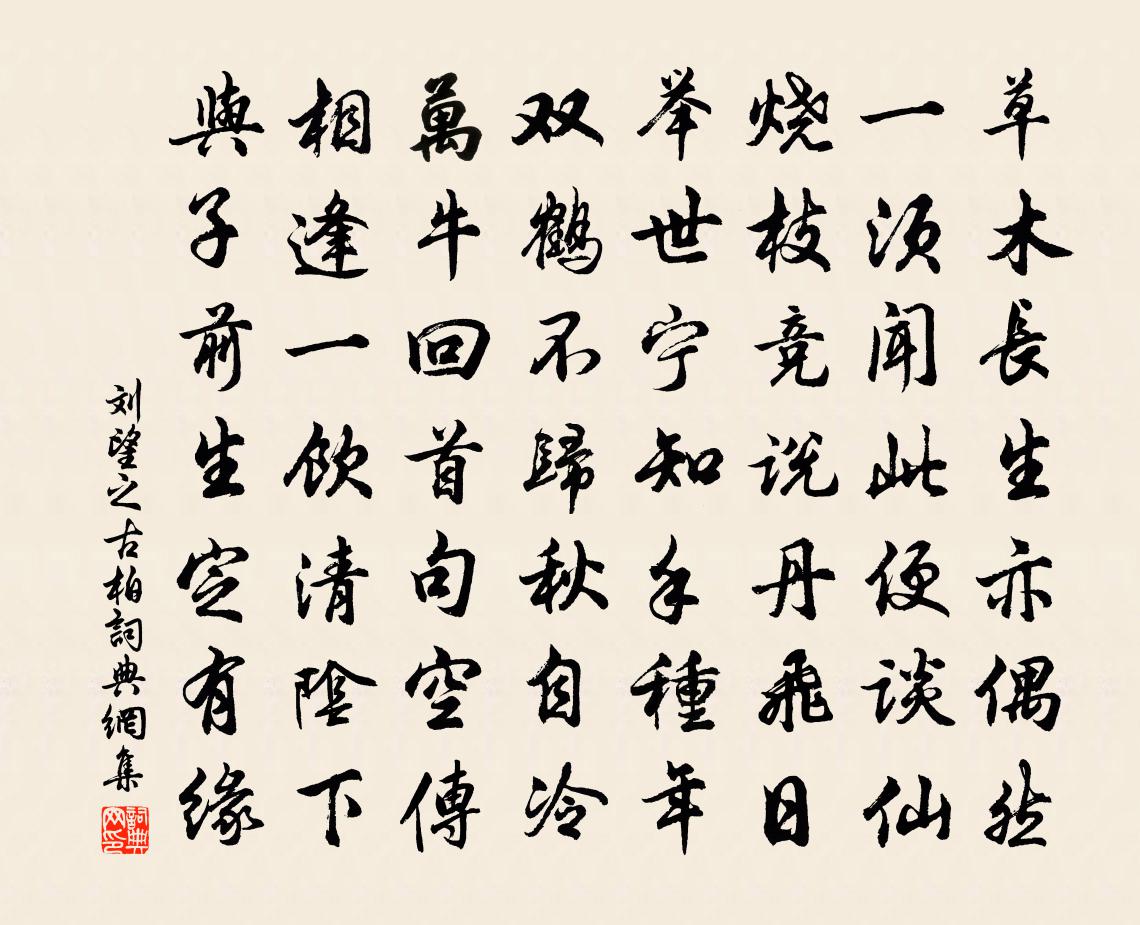 草木長生亦偶然
一须闻此便谈仙
烧枝竞说丹飛日
举世宁知手種年
双鹤不歸秋自冷
萬牛回首句空傳
相逢一飲清陰下
與子前生定有缘
刘望之古柏詞典網集
詞典网印